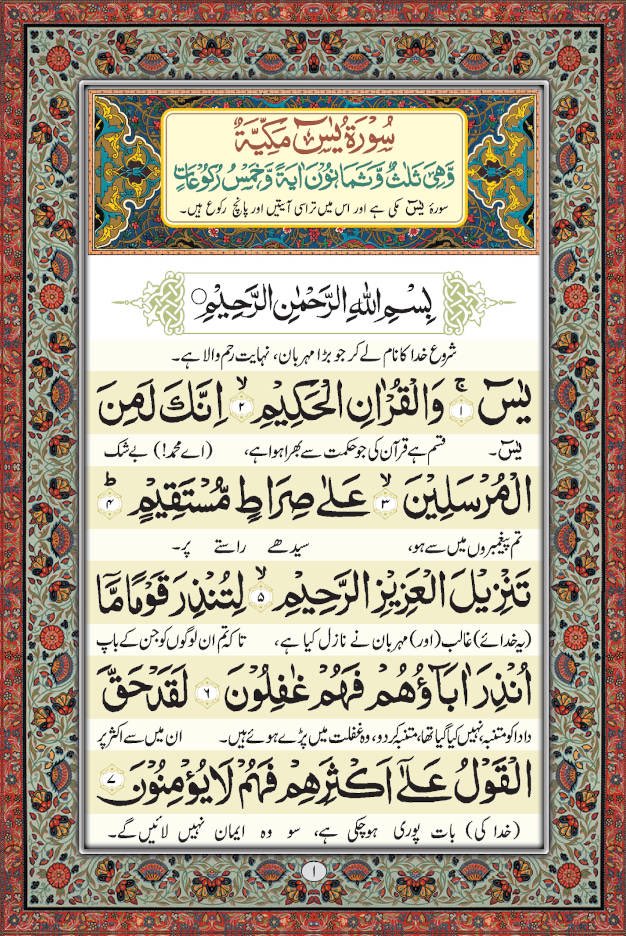 سُوْرَةُ يٰسٓ مَكِّيَّةٌ
وَّهِيَ ثَلٰثٌ وَّثَمَانُوْنَ اٰيَةً وَّخَمْسُ رُكُوْعَاتٍ
سورۂ یٰسٓ مکی ہے اور اس میں تراسی آیتیں اور پانچ رکوع ہیں۔
بِسْمِ اللّٰهِ الرَّحْمٰنِ الرَّحِيْمِ
شروع خدا کا نام لے کر جو بڑا مہربان، نہایت رحم والا ہے۔
يٰسٓ ۚ ۱ وَالْقُرْاٰنِ الْحَكِيْمِ ۙ ۲ اِنَّكَ لَمِنَ
یٰسٓ۔ قسم ہے قرآن کی جو حکمت سے بھرا ہوا ہے، (اے محمدؐ!) بے شک
الْمُرْسَلِيْنَ ۙ ۳ عَلٰى صِرَاطٍ مُّسْتَقِيْمٍ ؕ ۴
تم پیغمبروں میں سے ہو، سیدھے راستے پر۔
تَنْزِيْلَ الْعَزِيْزِ الرَّحِيْمِ ۙ ۵ لِتُنْذِرَ قَوْمًا مَّاۤ
(یہ خدائے) غالب (اور) مہربان نے نازل کیا ہے، تاکہ تم ان لوگوں کو جن کے باپ
اُنْذِرَ اٰبَآؤُهُمْ فَهُمْ غٰفِلُوْنَ ۶ لَقَدْ حَقَّ
دادا کو متنبہ نہیں کیا گیا تھا، متنبہ کر دو، وہ غفلت میں پڑے ہوئے ہیں۔ ان میں سے اکثر پر
الْقَوْلُ عَلٰۤى اَكْثَرِهِمْ فَهُمْ لَا يُؤْمِنُوْنَ ۷
(خدا کی) بات پوری ہوچکی ہے، سو وہ ایمان نہیں لائیں گے۔
۱